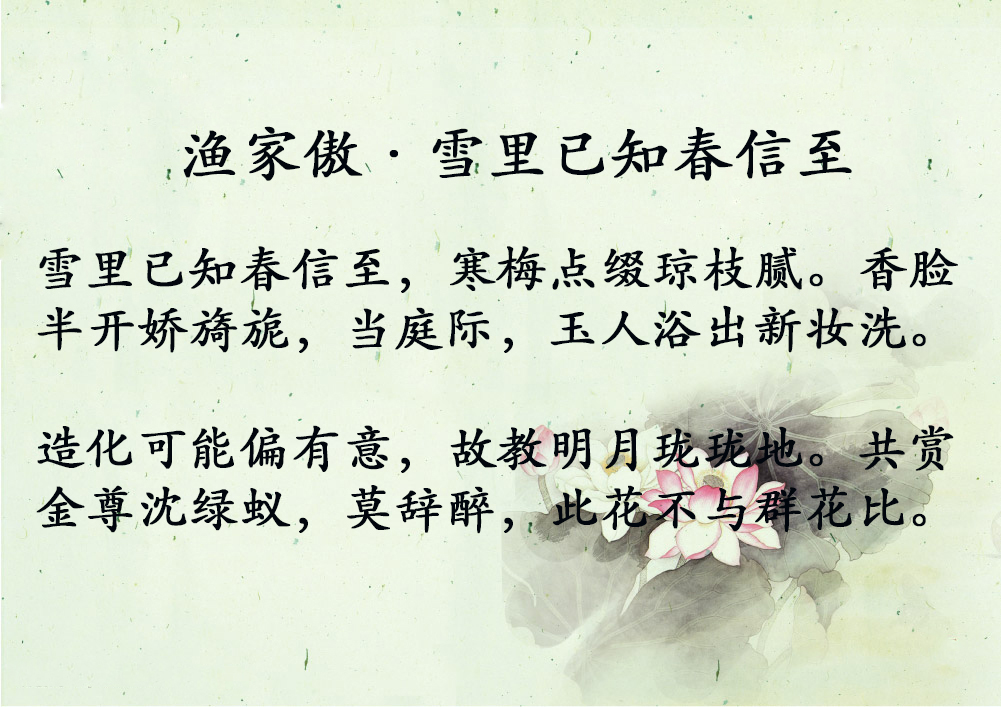 渔家傲·雪里已知春信至
雪里已知春信至，寒梅点缀琼枝腻。香脸
半开娇旖旎，当庭际，玉人浴出新妆洗。
造化可能偏有意，故教明月珑珑地。共赏
金尊沈绿蚁，莫辞醉，此花不与群花比。